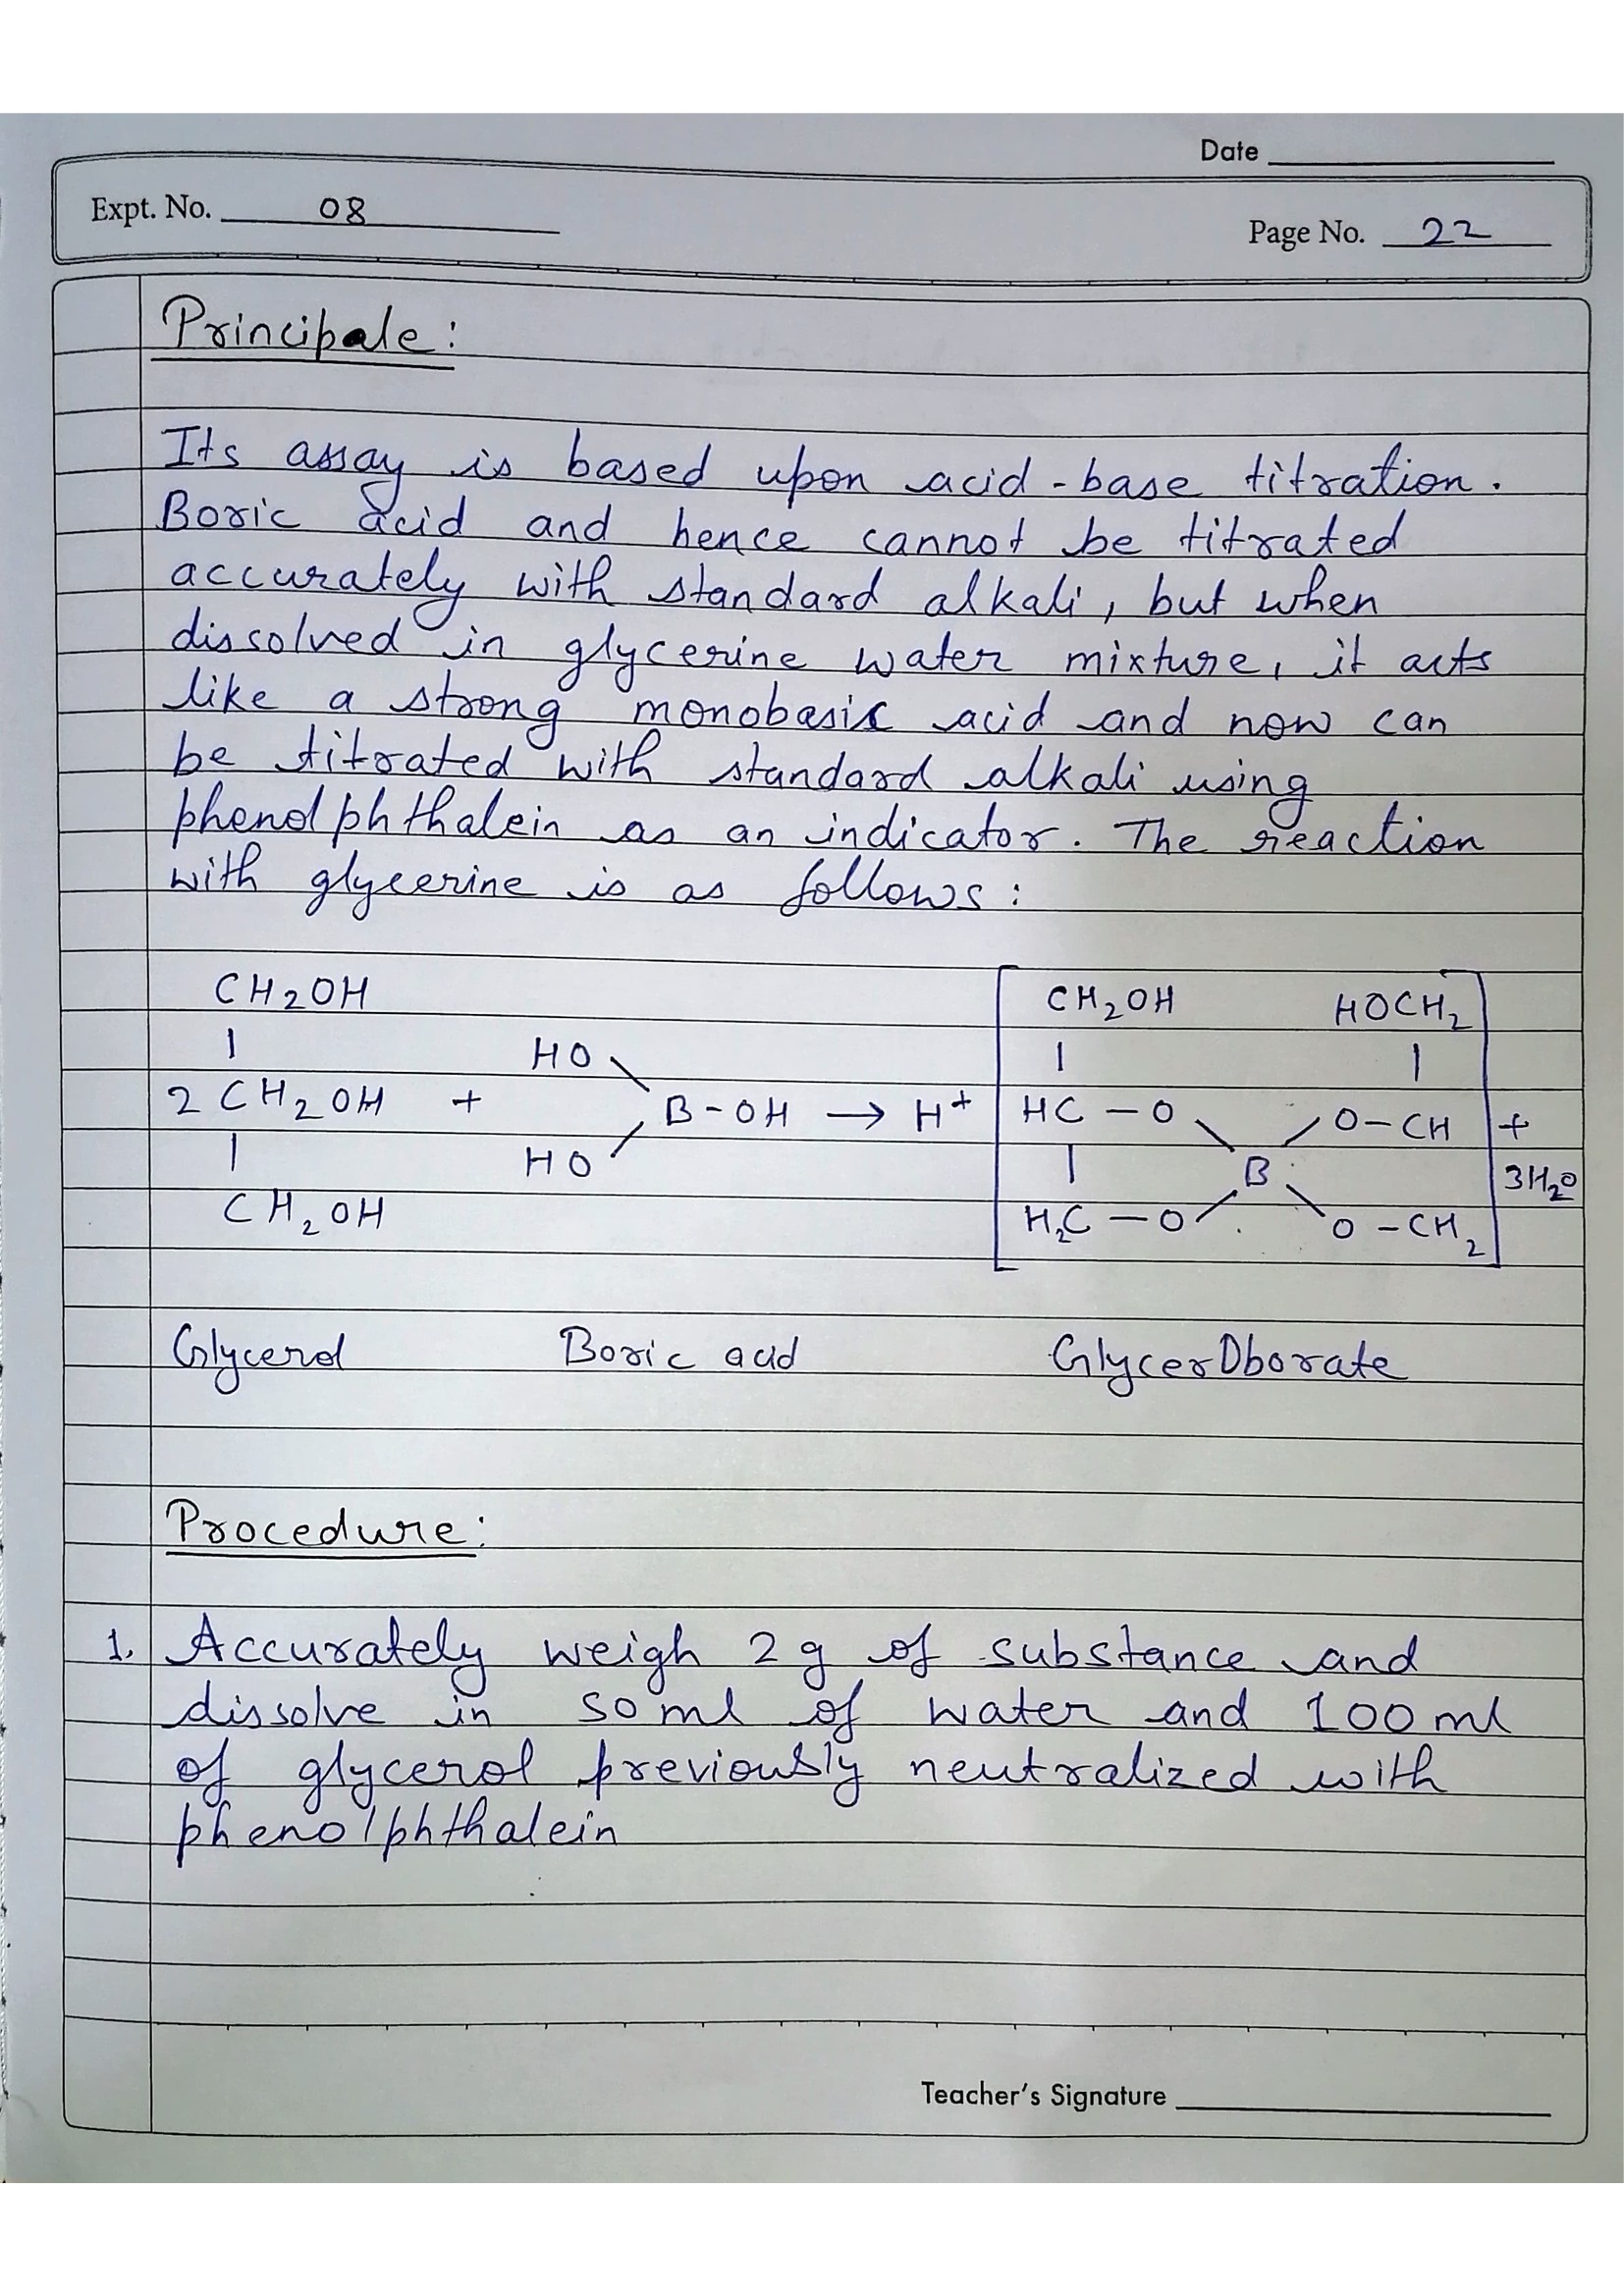 Date
Expt. No. 08
Page No. 22
Principale:
Its assay is based upon acid-base titration.
Boric acid and hence cannot be titrated
accurately with standard alkali, but when
dissolved in glycerine water mixture, it acts
like a strong monobasic acid and now can
be titrated with standard alkali using
phenolphthalein as an indicator. The reaction
with glycerine is as follows:
CH₂OH CH₂OH HOCH₂
| HO \ | |
2 CH₂OH + B-OH → H⁺ HC-O \ / O-CH +
| HO / | B 3H₂O
CH₂OH H₂C-O / \ O-CH₂
Glycerol Boric acid Glyceroborate
Procedure:
1. Accurately weigh 2g of substance and
dissolve in 50 ml of water and 100 ml
of glycerol previously neutralized with
phenolphthalein
Teacher's Signature